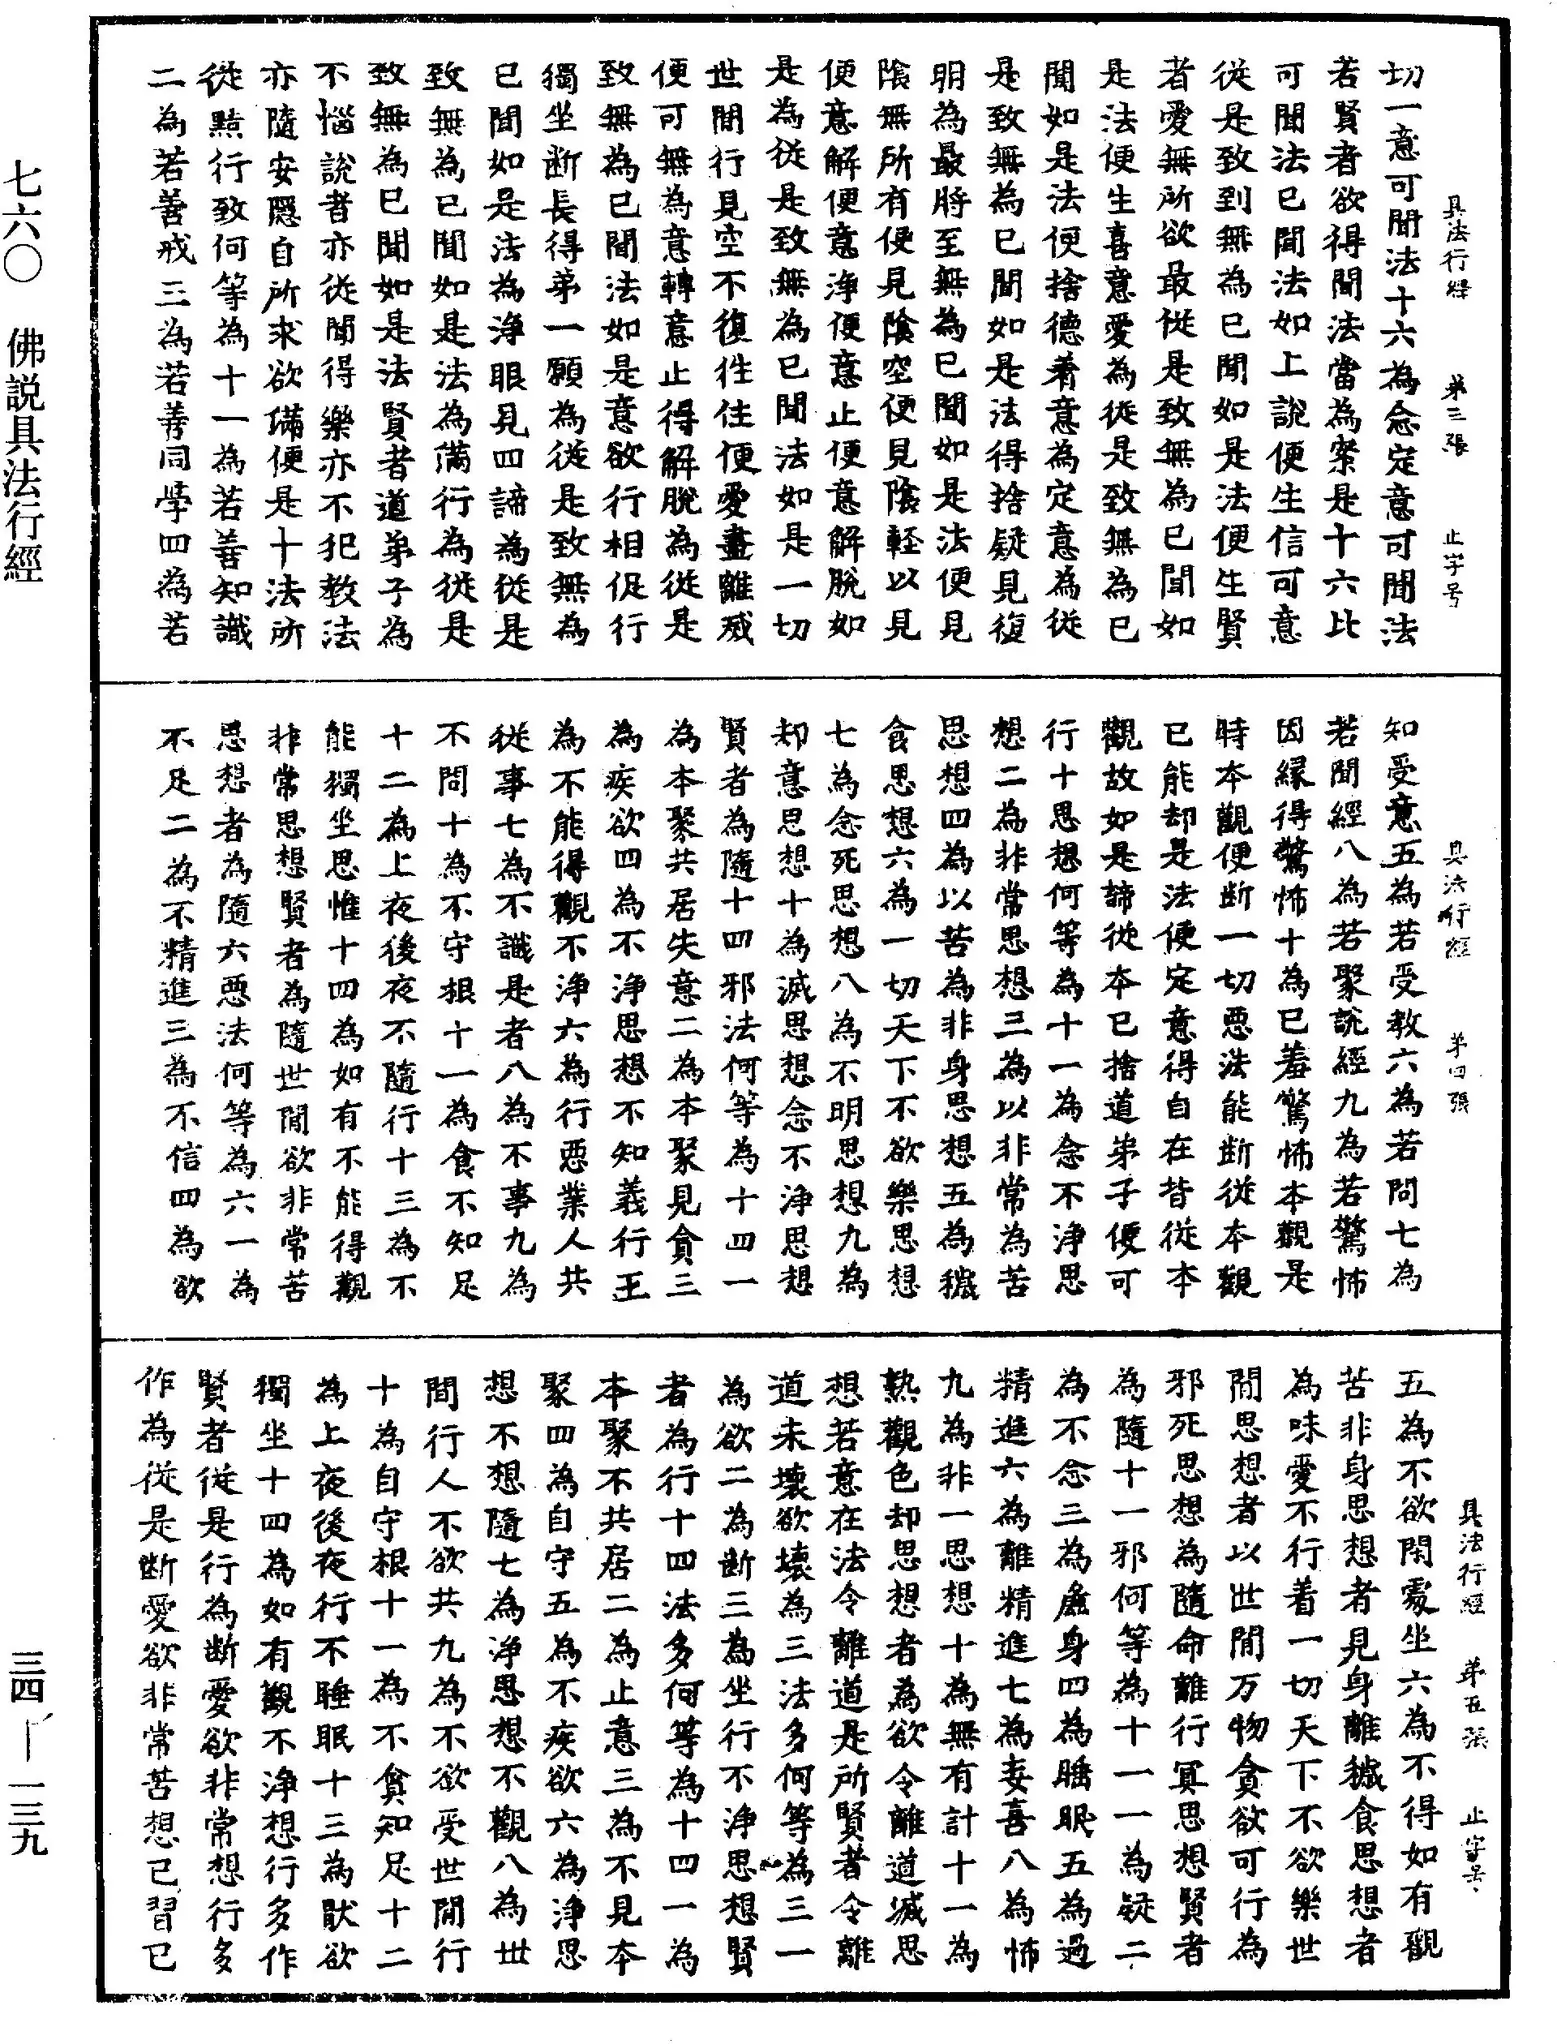 具法行經 第三張 止字号
切一意可聞法十六為念定意可聞法
若賢者欲得聞法當為案是十六比
可聞法已聞法如上說便生信可意
從是致到無為已聞如是法便生賢
者愛無所欲最從是致無為已聞如
是法便生喜意愛為從是致無為已
聞如是法便捨德着意為定意為從
是致無為已聞如是法得捨疑見復
明為最將至無為已聞如是法便見
陰無所有便見陰空便見陰輕以見
便意解便意淨便意止便意解脫如
是為從是致無為已聞法如是一切
世間行見空不復徃住便愛盡離滅
便可無為意轉意止得解脫為從是
致無為已聞法如是意欲行相促行
獨坐斷長得苐一願為從是致無為
已聞如是法為淨眼見四諦為從是
致無為已聞如是法為滿行為從是
致無為已聞如是法賢者道弟子為
不惱說者亦從聞得樂亦不犯教法
亦隨安隱自所求欲滿便是十法所
從㸃行致何等為十一為若善知識
二為若善戒三為若善同學四為若
具法行經 第四張
知受意五為若受教六為若問七為
若聞經八為若聚說經九為若驚怖
因緣得驚怖十為已羞驚怖本觀是
時本觀便斷一切惡法能斷從本觀
已能却是法便定意得自在皆從本
觀故如是諦從本已捨道弟子便可
行十思想何等為十一為念不淨思
想二為非常思想三為以非常為苦
思想四為以苦為非身思想五為穢
食思想六為一切天下不欲樂思想
七為念死思想八為不明思想九為
却意思想十為滅思想念不淨思想
賢者為隨十四邪法何等為十四一
為本聚共居失意二為本聚見貪三
為疾欲四為不淨思想不知義行王
為不能得觀不淨六為行惡業人共
從事七為不識是者八為不事九為
不問十為不守根十一為食不知足
十二為上夜後夜不隨行十三為不
能獨坐思惟十四為如有不能得觀
非常思想賢者為隨世間欲非常苦
思想者為隨六惡法何等為六一為
不足二為不精進三為不信四為欲
具法行經 第五張 止字号
五為不欲閑處坐六為不得如有觀
苦非身思想者見身離穢食思想者
為味愛不行着一切天下不欲樂世
間思想者以世間万物貪欲可行為
邪死思想為隨命離行冥思想賢者
為隨十一邪何等為十一一為疑二
為不念三為麁身四為睡眠五為過
精進六為離精進七為妄喜八為怖
九為非一思想十為無有計十一為
熟觀色却思想者為欲令離道滅思
想若意在法令離道是所賢者令離
道未壞欲壞為三法多何等為三一
為欲二為斷三為坐行不淨思想賢
者為行十四法多何等為十四一為
本聚不共居二為止意三為不見本
聚四為自守五為不疾欲六為淨思
想不想隨七為淨思想不觀八為世
間行人不欲共九為不欲受世間行
十為自守根十一為不貪知足十二
為上夜後夜行不睡眠十三為猒欲
獨坐十四為如有觀不淨想行多作
賢者從是行為斷愛欲非常想行多
作為從是斷愛欲非常苦想已習已
七六〇 佛説具法行經
三四—一三九